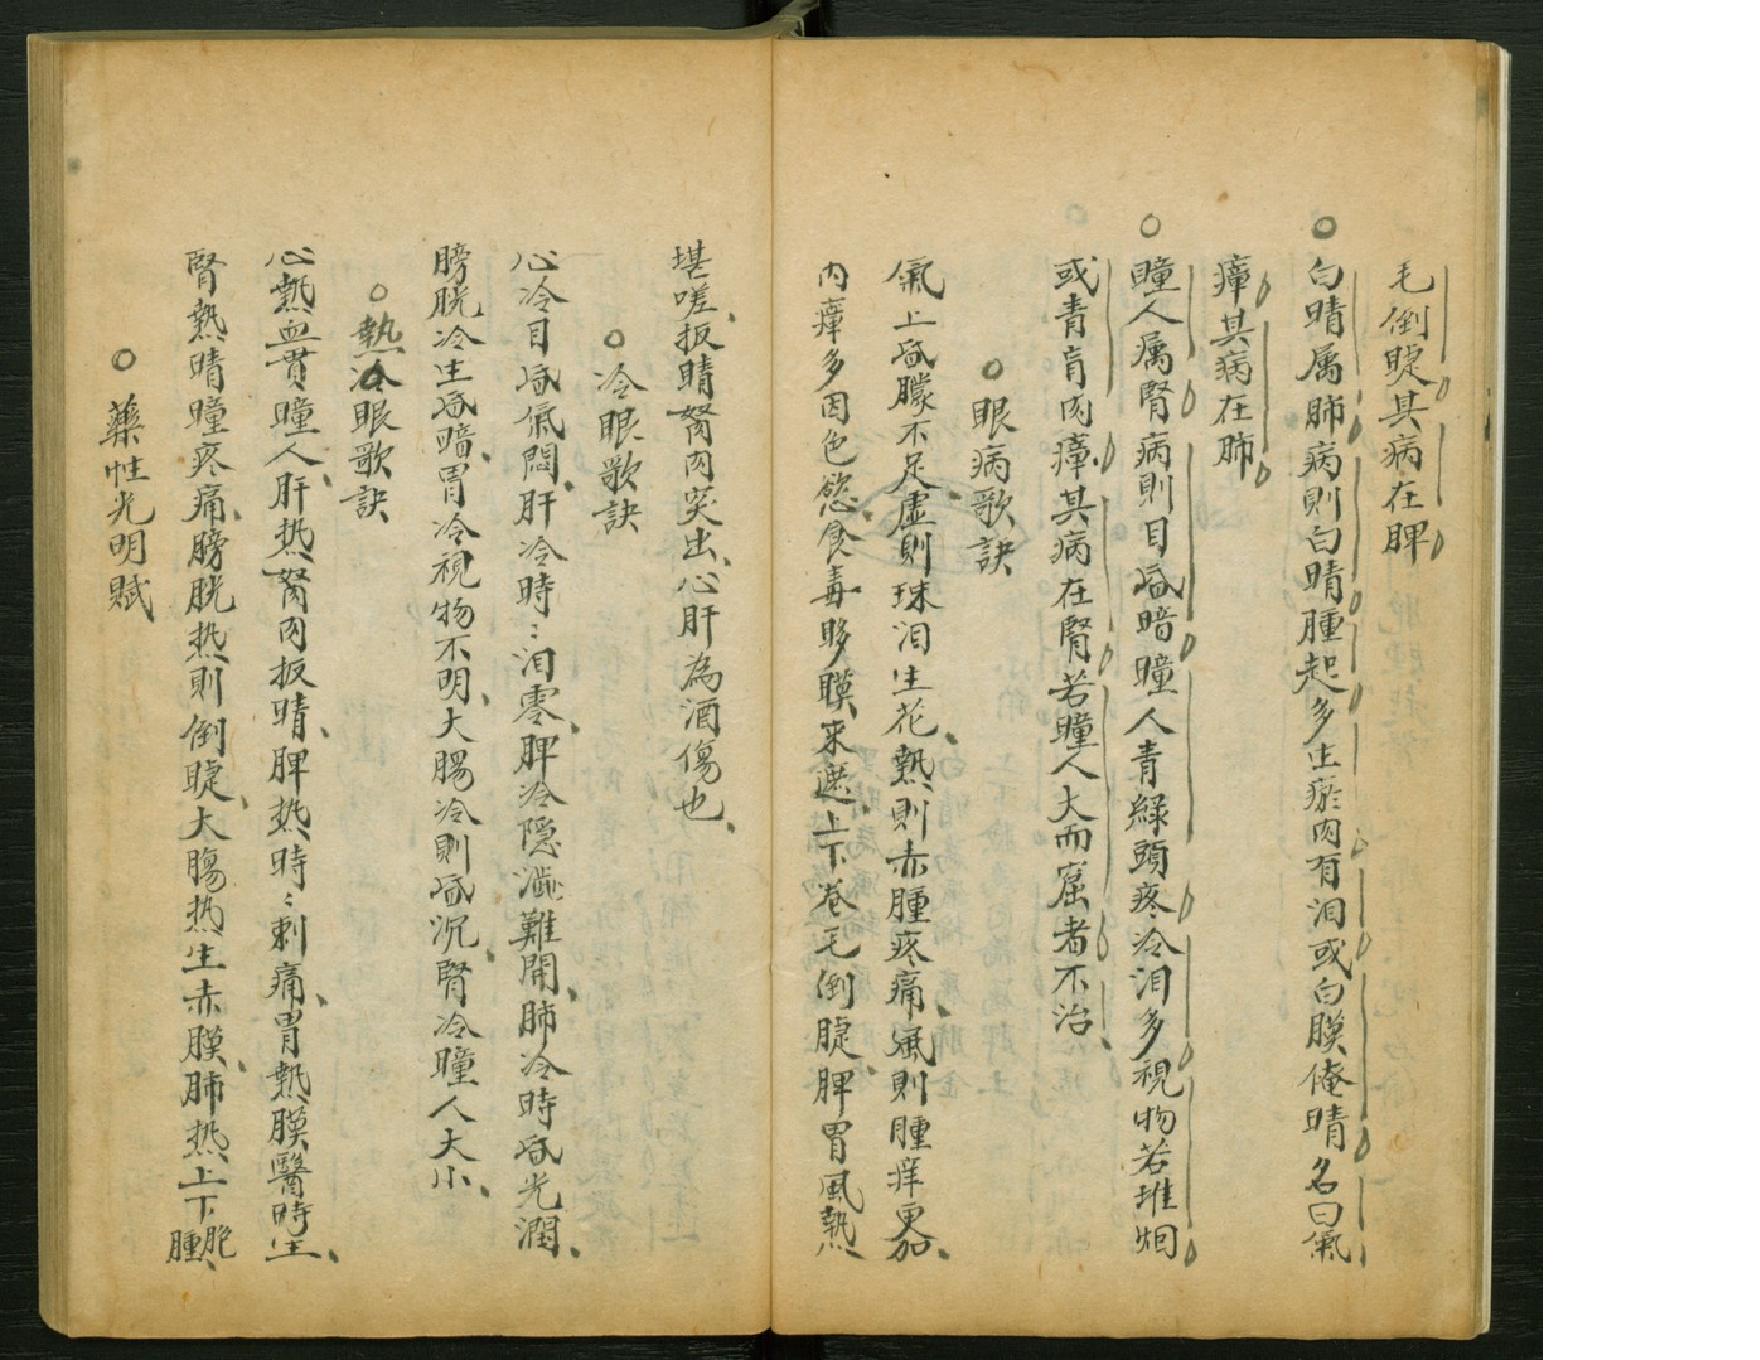 毛倒睫其病在脾
○白睛属肺病則白睛腫起多生瘀肉有泪或白膜俺睛名曰氣
瘴其病在肺
○瞳人属腎病則目昏暗瞳人青綠頭疼冷泪多視物若堆烟
或青盲内瘴其病在腎若瞳人大而窟者不治
○眼病歌訣
氣上昏矇不足虛則珠泪生花熱則赤腫疼痛風則腫痒更加
内瘴多因色慾食毒眵膜来遮上下卷毛倒睫脾胃風熱
堪嗟扳睛胬肉突出心肝為酒傷也
○冷眼歌訣
心冷目昏氣悶肝冷時〻泪零脾冷隐澁難開肺冷時昏光潤
膀胱冷生昏暗胃冷視物不明大腸冷則昏沉腎冷瞳人大小
○熱冷眼歌訣
心熱血貫瞳人肝热胬肉扳睛脾热時〻刺痛胃熱膜醫時生
腎熱睛瞳疼痛膀胱热則倒睫大腸热生赤膜肺热上下胞腫
○藥性光明賦